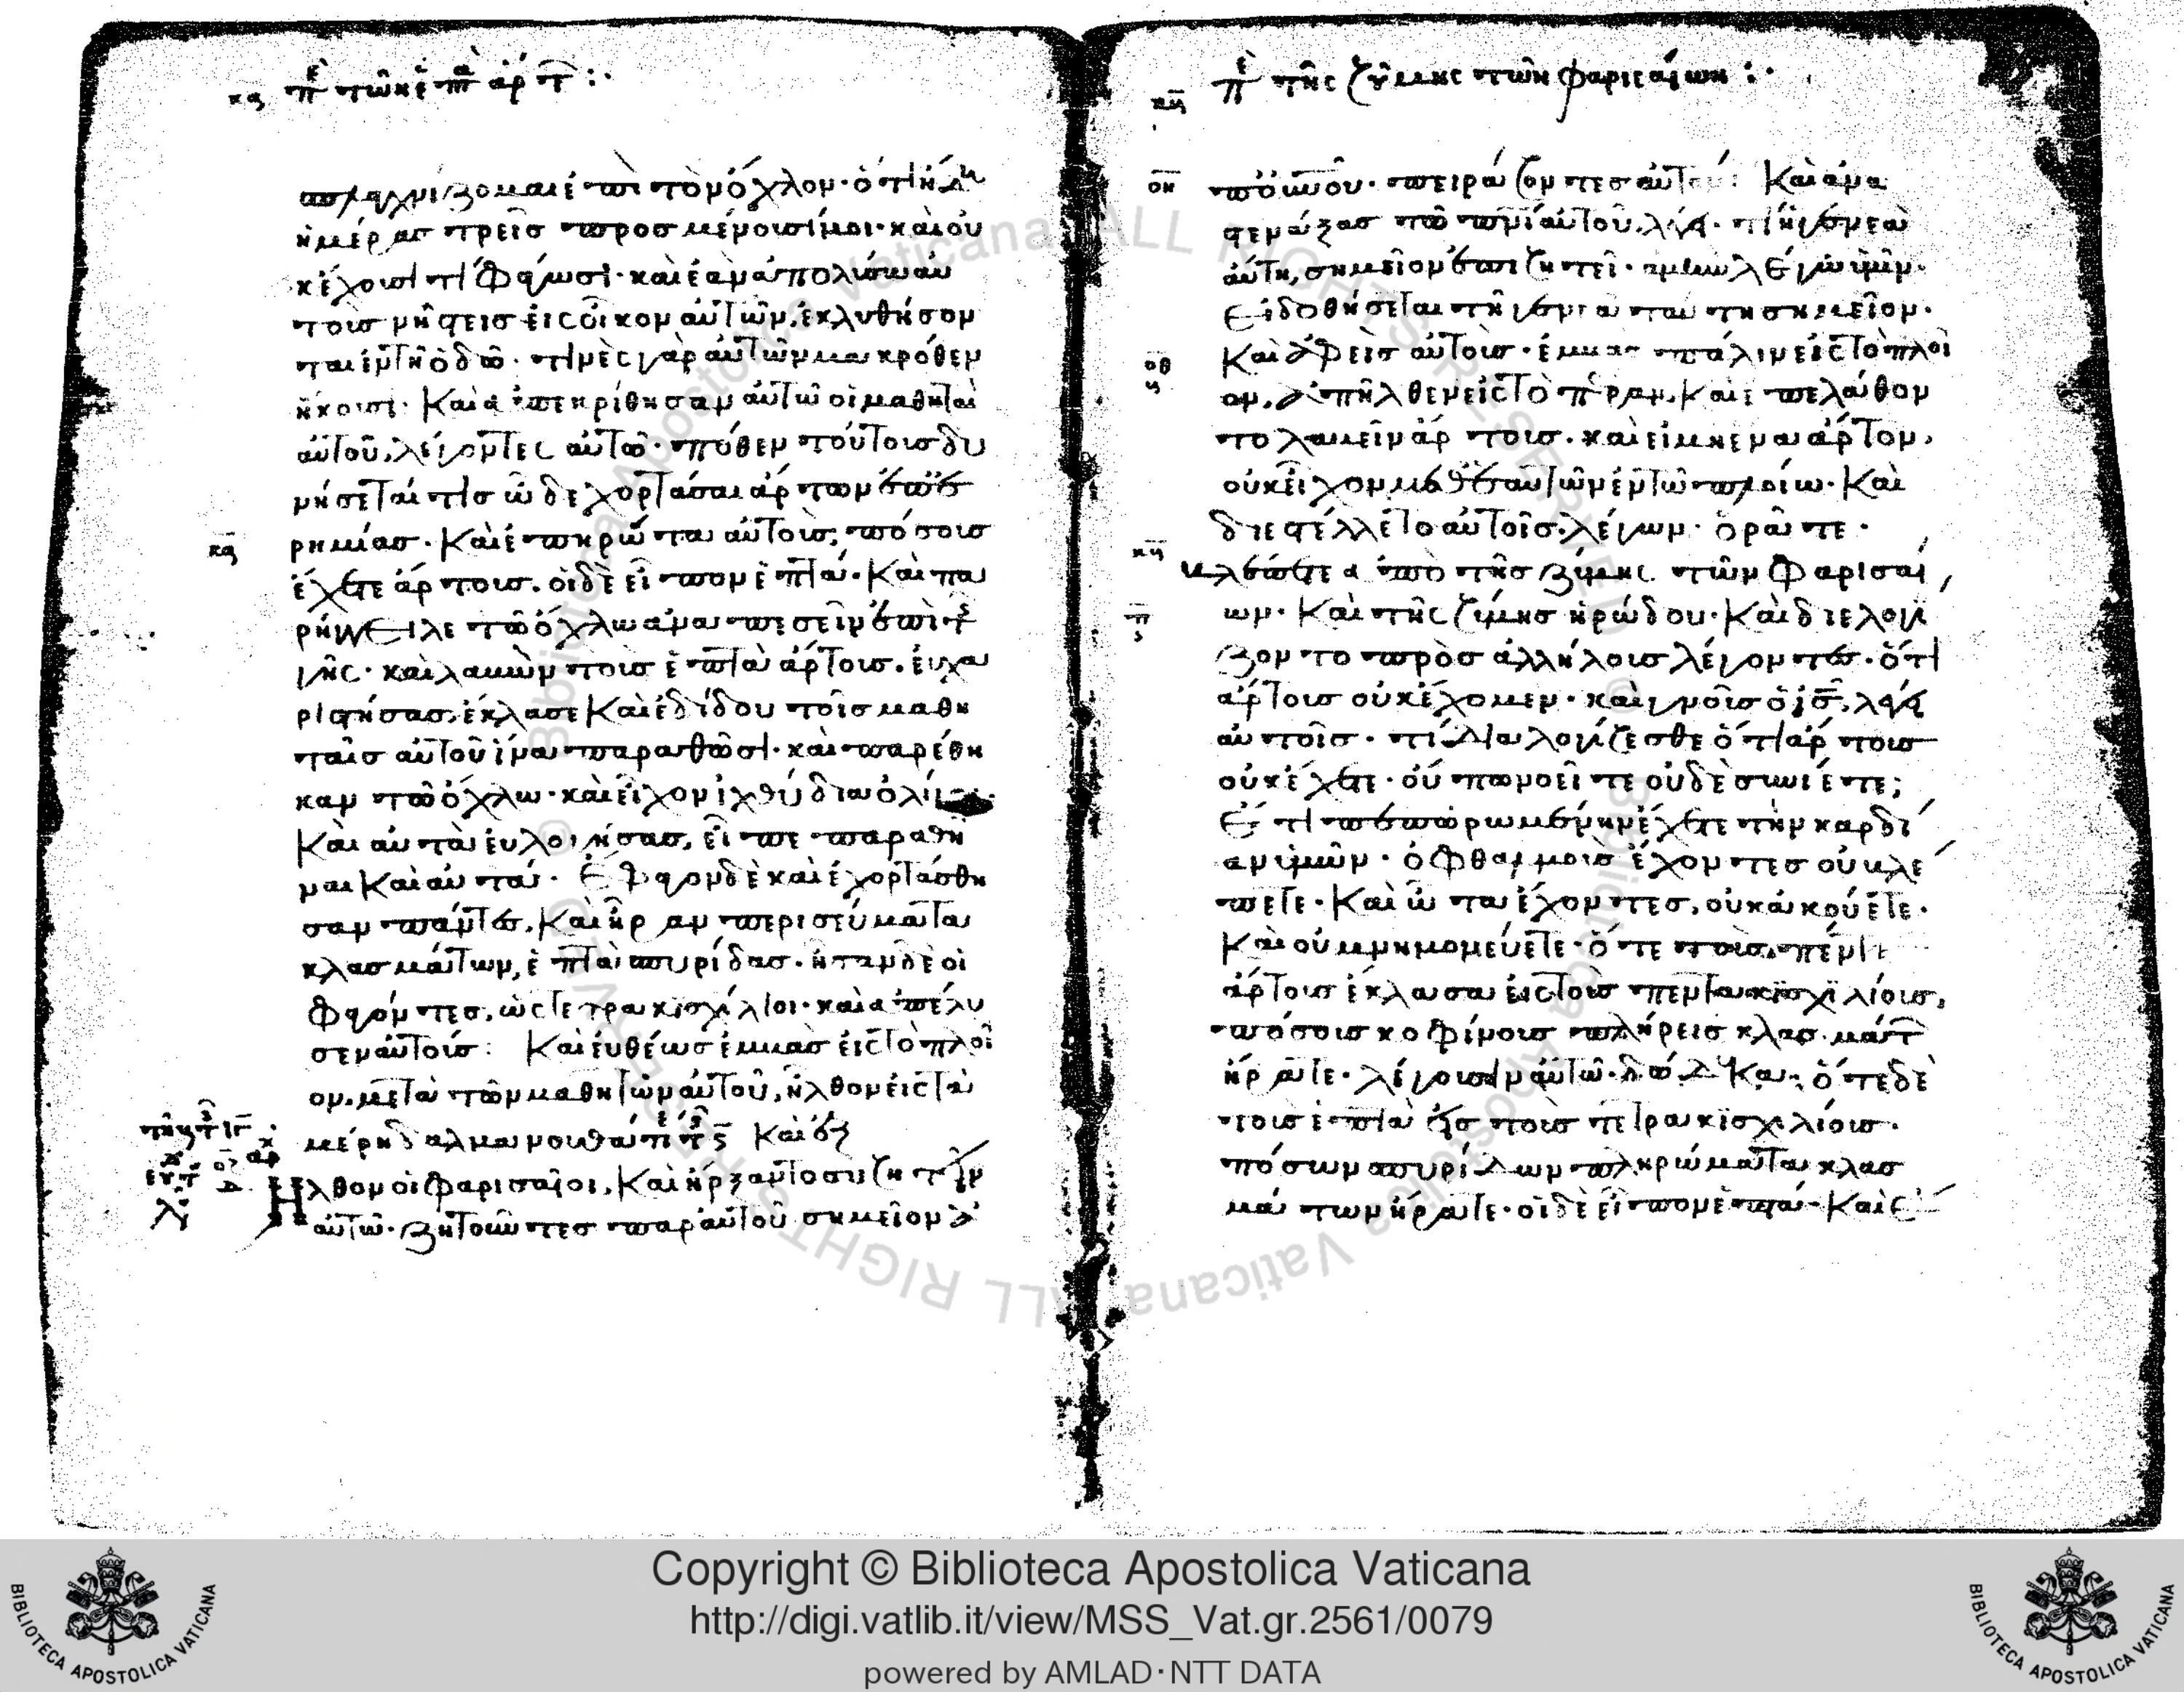 κα περὶ τῶν ἑπτὰ ἄρτων :·
σπλαγχνίζομαι ἐπὶ τὸν ὄχλον· ὅτι ἤδη
ἡμέρας τρεῖς προσμένουσί μοι· καὶ οὐ
κ ἔχουσι τί φάγωσι· καὶ ἐὰν ἀπολύσω αὐ
τοὺς νήστεις εἰς οἶκον αὐτῶν, ἐκλυθήσον
ται ἐν τῇ ὁδῷ· τινὲς γὰρ αὐτῶν μακρόθεν
ἥκουσι· Καὶ ἀπεκρίθησαν αὐτῷ οἱ μαθηταὶ
αὐτοῦ, λέγοντες αὐτῷ· πόθεν τούτους δυ
νήσεταί τις ὧδε χορτάσαι ἄρτων ἐπ' ἐ
κα ρημίας· Καὶ ἐπηρώτα αὐτούς, πόσους
ἔχετε ἄρτους. οἱ δὲ εἶπον ἑπτά· Καὶ πα
ρήγγειλε τῷ ὄχλῳ ἀναπεσεῖν ἐπὶ τῆς
γῆς· καὶ λαβὼν τοὺς ἑπτὰ ἄρτους, εὐχα
ριστήσας, ἔκλασε καὶ ἐδίδου τοῖς μαθη
ταῖς αὐτοῦ ἵνα παραθῶσι· καὶ παρέθη
καν τῷ ὄχλῳ· καὶ εἶχον ἰχθύδια ὀλίγα·
Καὶ αὐτὰ εὐλογήσας, εἶπε παραθῆ
ναι καὶ αὐτά· Ἔφαγον δὲ καὶ ἐχορτάσθη
σαν πάντες, καὶ ἦραν περισσεύματα
κλασμάτων, ἑπτὰ σπυρίδας. ἦσαν δὲ οἱ
φαγόντες, ὡς τετρακισχίλιοι· καὶ ἀπέλυ
σεν αὐτούς: Καὶ εὐθέως ἐμβὰς εἰς τὸ πλοῖ
ον μετὰ τῶν μαθητῶν αὐτοῦ, ἦλθον εἰς τὰ
μέρη δαλμανουθά Καὶ ἐξ
ῆλθον οἱ φαρισαῖοι, Καὶ ἤρξαντο συζητεῖν
αὐτῷ· ζητοῦντες παρ' αὐτοῦ σημεῖον ἀ
κη περὶ τῆς ζύμης τῶν φαρισαίων :·
οη πὸ οὐνοῦ· πειράζοντες αὐτόν: Καὶ ἀνα
στενάξας τῷ πνι αὐτοῦ, λέγει· τί ἡ γενεὰ
αὕτη, σημεῖον ἐπιζητεῖ· ἀμὴν λέγω ὑμῖν·
εἰ δοθήσεται τῇ γενεᾷ ταύτῃ σημεῖον·
Καὶ ἀφεὶς αὐτούς· ἐμβὰς πάλιν εἰς τὸ πλοῖ
οθ ον, ἀπῆλθεν εἰς τὸ πέραν, καὶ ἐπελάθον
το λαβεῖν ἄρτους· καὶ εἰ μὴ ἕνα ἄρτον,
οὐκ εἶχον μεθ' ἑαυτῶν ἐν τῷ πλοίῳ· Καὶ
διεστέλλετο αὐτοῖς, λέγων· ὁρᾶτε·
κη βλέπετε ἀπὸ τῆς ζύμης τῶν Φαρισαί
π ων· Καὶ τῆς ζύμης ἡρώδου· Καὶ διελογί
ζοντο πρὸς ἀλλήλους λέγοντες· ὅτι
ἄρτους οὐκ ἔχομεν· καὶ γνοὺς ὁ ις, λέγει
αὐτοῖς· τί διαλογίζεσθε ὅτι ἄρτους
οὐκ ἔχετε· οὔπω νοεῖτε οὐδὲ συνίετε;
Ἔτι πεπωρωμένην ἔχετε τὴν καρδί
αν ὑμῶν· ὀφθαλμοὺς ἔχοντες οὐ βλέ
πετε· Καὶ ὦτα ἔχοντες, οὐκ ἀκούετε·
Καὶ οὐ μνημονεύετε· ὅτε τοὺς πέντε
ἄρτους ἔκλασα εἰς τοὺς πεντακισχιλίους,
πόσους κοφίνους πλήρεις κλασμάτ
ἤρατε· λέγουσιν αὐτῷ· δώδεκα· ὅτε δὲ
τοὺς ἑπτὰ εἰς τοὺς τετρακισχιλίους·
πόσων σπυρίδων πληρώματα κλασ
μάτων ἤρατε· οἱ δὲ εἶπον ἑπτά· Καὶ ἔ
Copyright © Biblioteca Apostolica Vaticana
http://digi.vatlib.it/view/MSS_Vat.gr.2561/0079
powered by AMLAD·NTT DATA
BIBLIOTECA APOSTOLICA VATICANA
BIBLIOTECA APOSTOLICA VATICANA